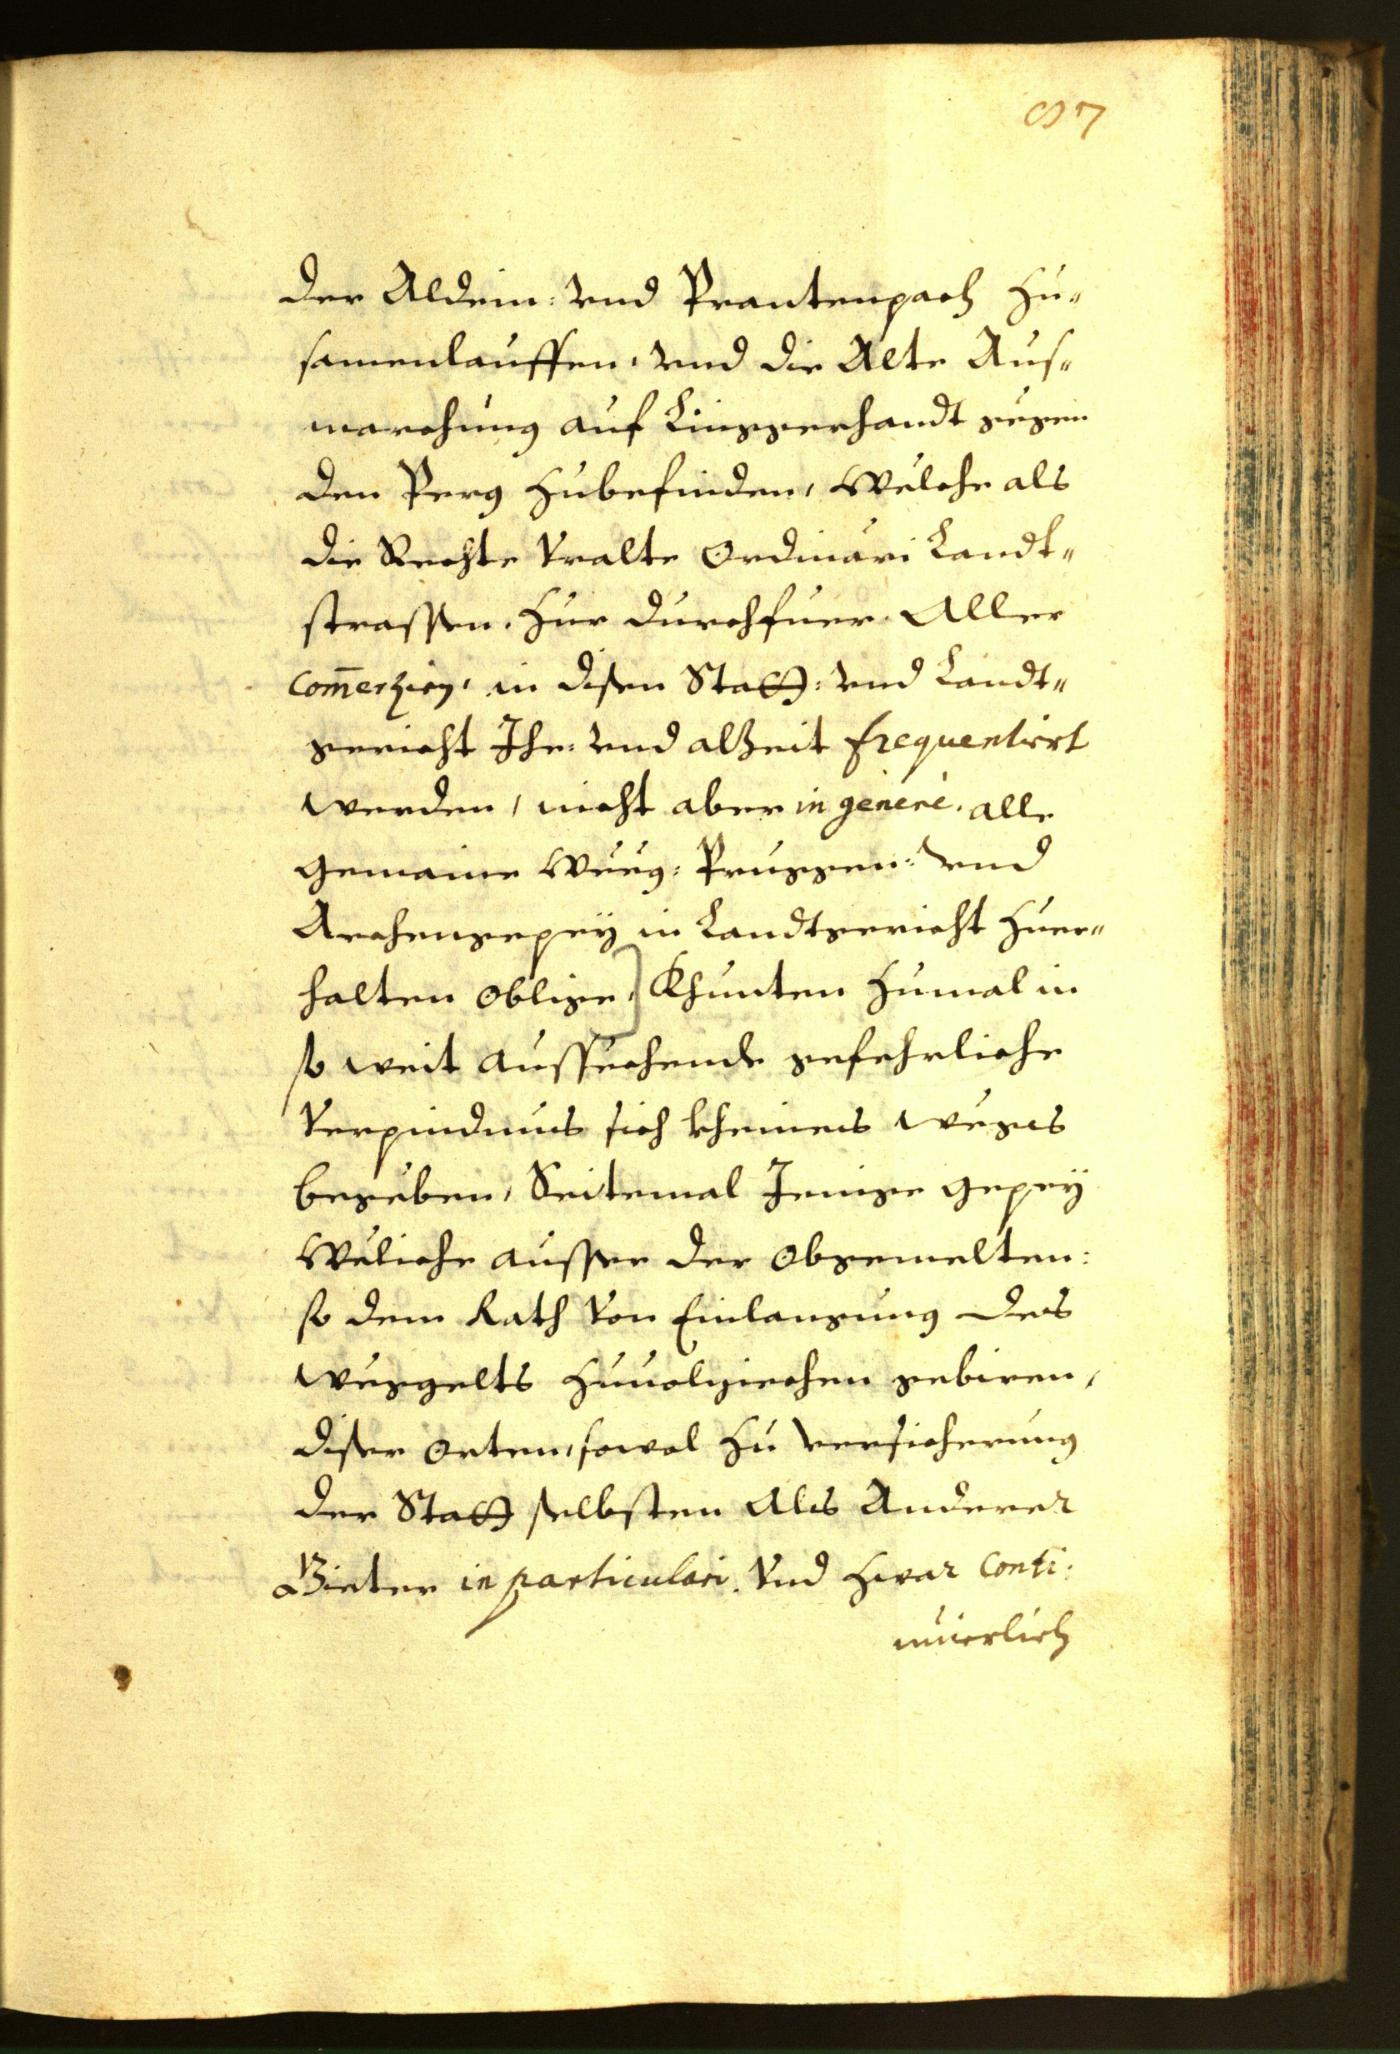 87
der Aldein: vnd Prantenpach zu„
samenlauffen, vnd die Alte Aus„
marchung auf Linggerhandt gegen
den Perg zubefinden, Welche als
die Rechte Vralte Ordinari Landt„
strassen, zur durchfuer Aller
Com̄erzien, in disen Statt: vnd Landt„
gericht Ihe: vnd alzeit frequentirt
werden, nicht aber in genere, alle
gemaine Weeg: Pruggen: vnd
Archengepey in Landtgericht zuer„
halten oblige,] Khunten zumal in
so weit aussechende gefehrliche
Verpindnus sich kheines weges
begeben, Seitemal Jenige gepey
Weliche ausser der obgemelten:
so dem Rath von Einlangung des
weggelts zuuolziechen gebiren,
diser orten, sowol zu versicherung
der Statt selbsten Als Anderer
Gieter in particulari, Vnd zwar Conti:
nuierlich